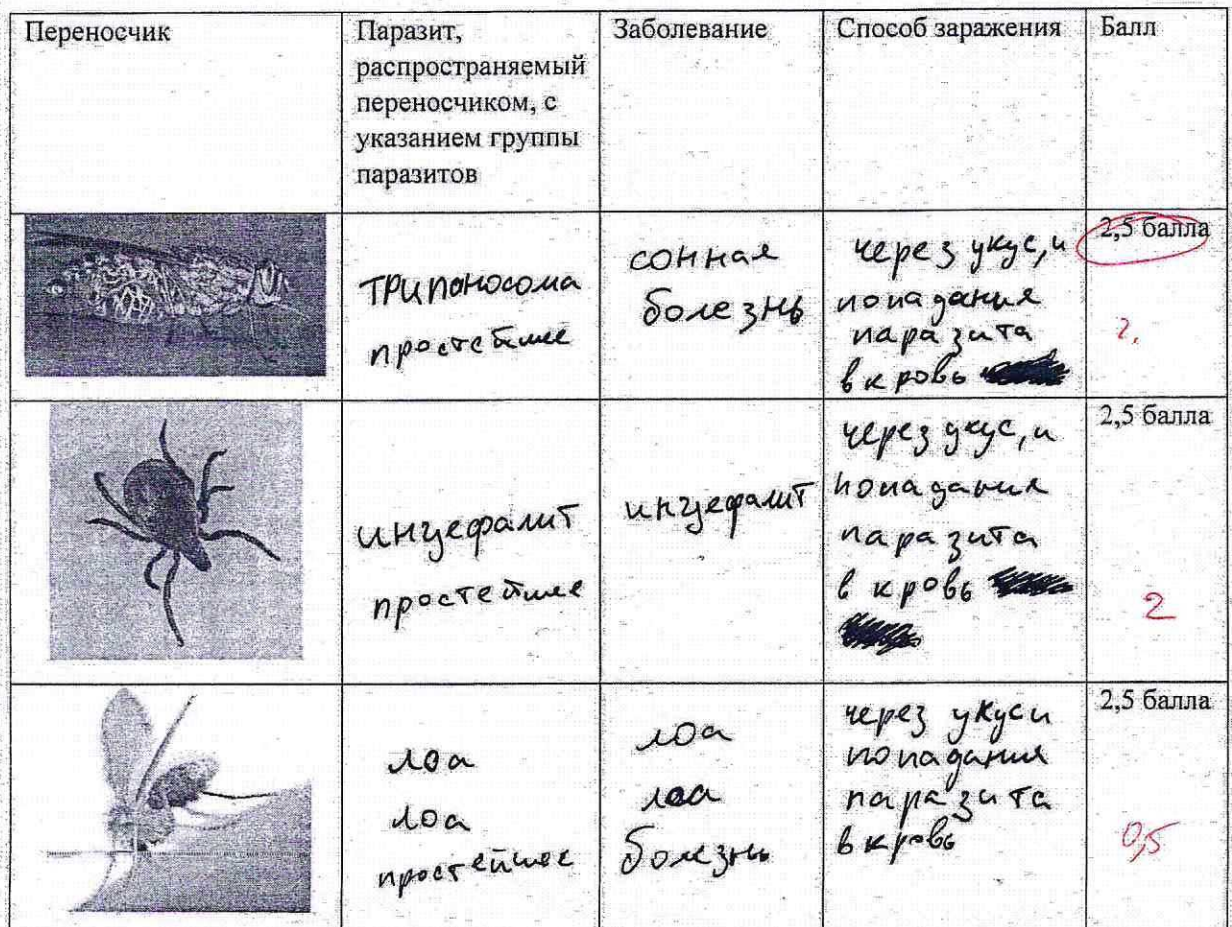 Переносчик
Паразит,
распространяемый
переносчиком, с
указанием группы
паразитов
Заболевание
Способ заражения
Балл
трипоносома
простейшее
сонная
болезнь
через укус, и
попадания
паразита
в кровь
2,5 балла
2,
инцефалит
простейшее
инцефалит
через укус, и
попадания
паразита
в кровь
2,5 балла
2
лоа
лоа
простейшее
лоа
лоа
болезнь
через укус и
попадания
паразита
в кровь
2,5 балла
0,5